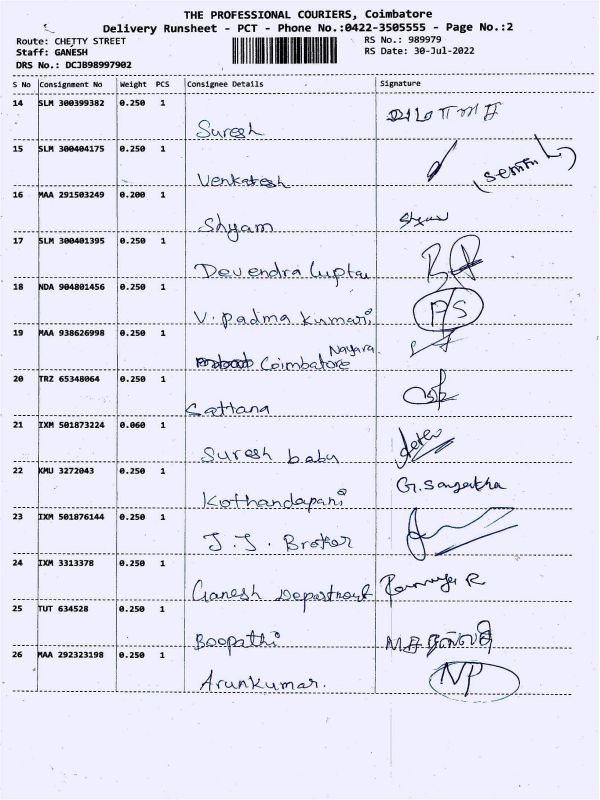 THE PROFESSIONAL COURIERS, Coimbatore
Delivery Runsheet - PCT - Phone No.:0422-3505555 - Page No.:2
Route: CHETTY STREET RS No.: 989979
Staff: GANESH RS Date: 30-Jul-2022
DRS No.: DCJB98997902
S No Consignment No Weight PCS Consignee Details Signature
14 SLM 300399382 0.250 1
Suresh
15 SLM 300404175 0.250 1
Venkatesh
16 MAA 291503249 0.200 1
Shyam
17 SLM 300401395 0.250 1
Devendra Gupta
18 NDA 904801456 0.250 1
V. Padma Kumari PS
19 MAA 938626998 0.250 1
Nayara
Coimbatore
20 TRZ 65348064 0.250 1
Sattana
21 IXM 501873224 0.060 1
Suresh baby
22 KMU 3272043 0.250 1
G. Sangeetha
Kothandapani
23 IXM 501876144 0.250 1
J.J. Broker
24 IXM 3313378 0.250 1
Ganesh Department Ramya R
25 TUT 634528 0.250 1
Boopathi
26 MAA 292323198 0.250 1
Arunkumar. NP